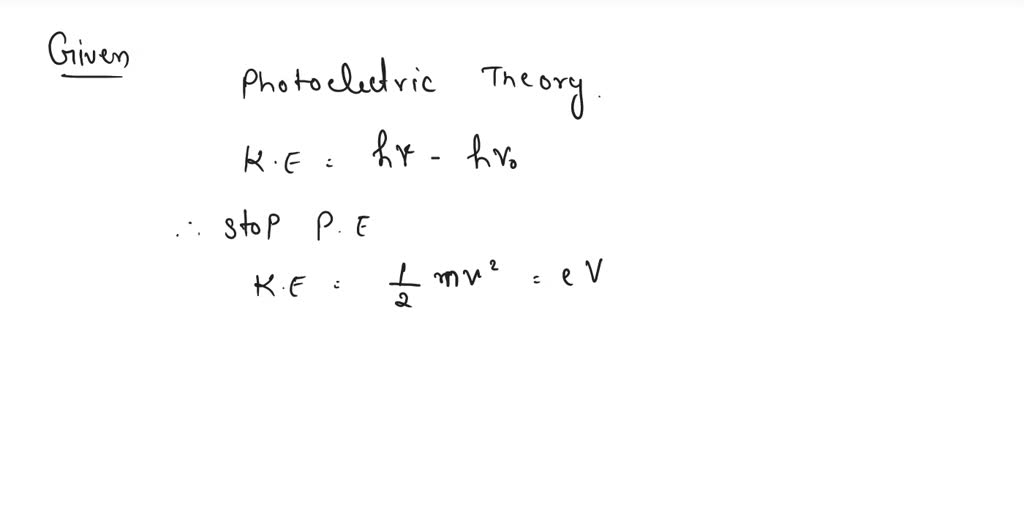 Given
Photoelectric Theory.
K.E = hν - hν₀
∴ stop P.E
K.E = 1/2 mv² = eV